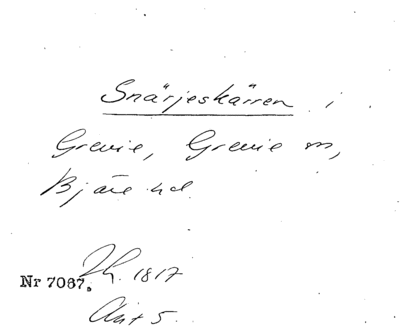 Snärjeskärren i
Grevie, Grevie sn,
Bjäre hd.
Nr 7067. Jh. 1817
Akt 5.